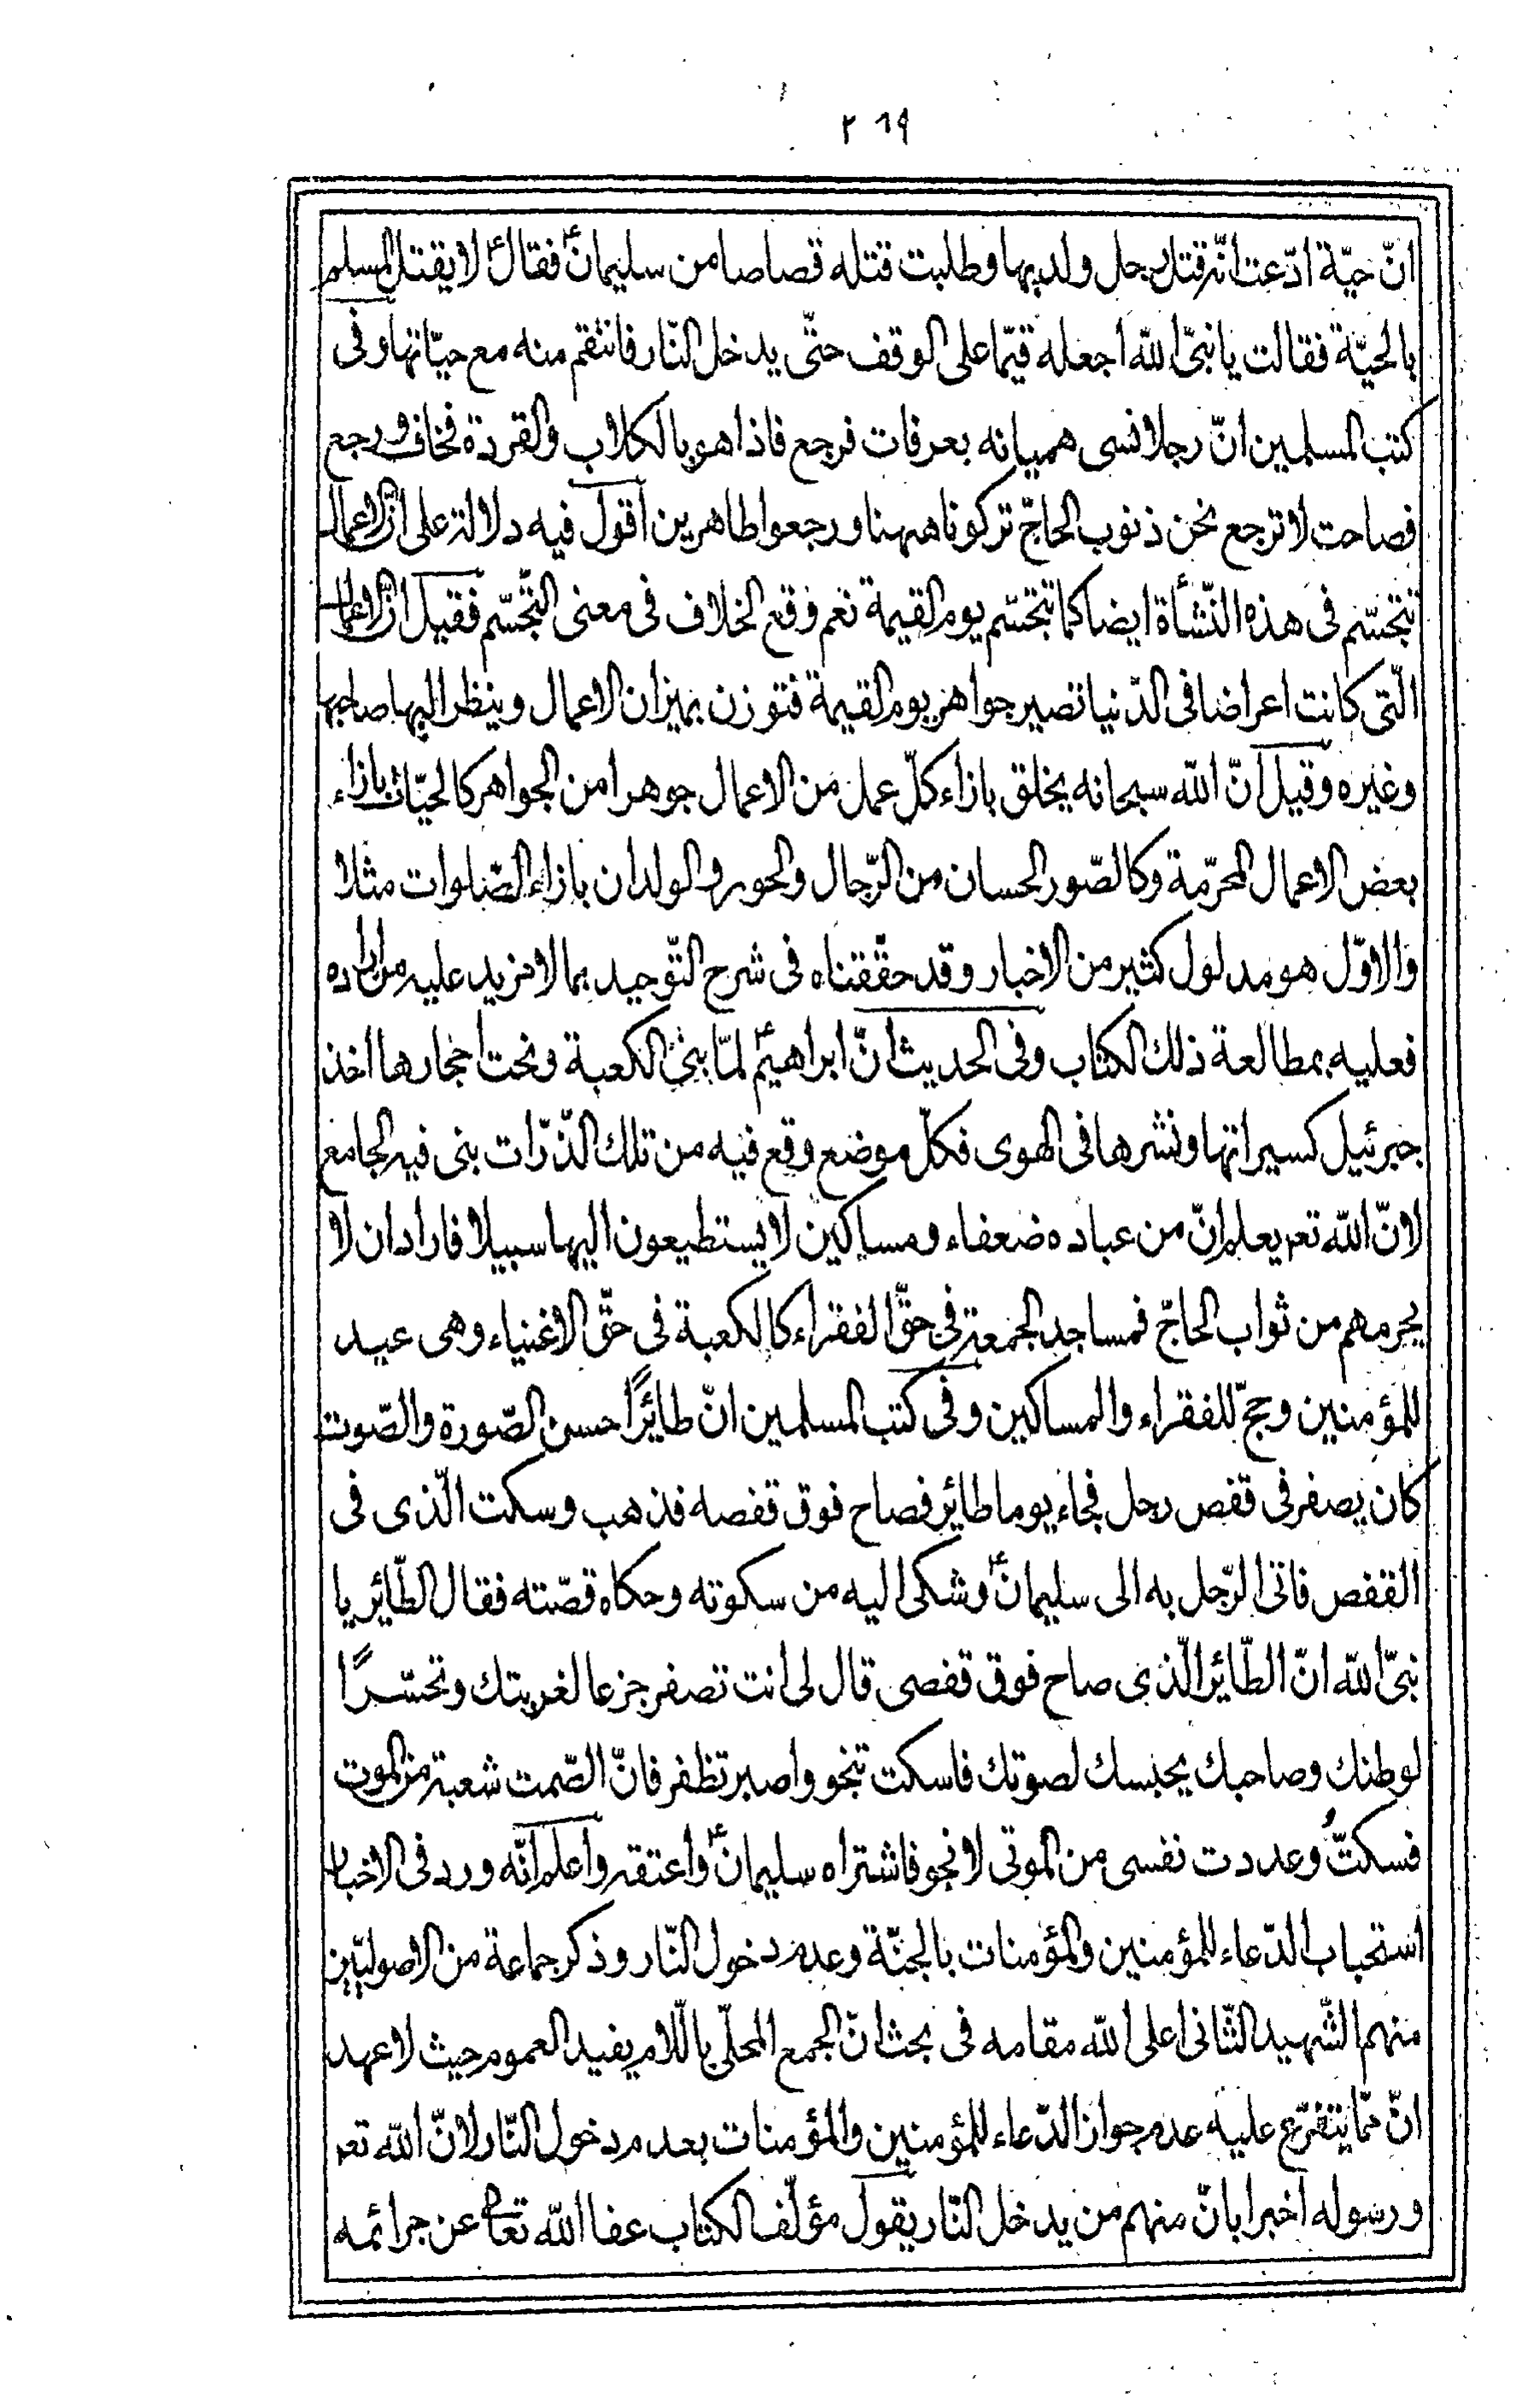 ٢٦٩
انّ حيّة ادّعت انّه قتل رجل ولديها وطلبت قتله قصاصا من سليمانؑ فقالؑ لا يقتل المسلم
بالحيّة فقالت يا نبىّ الله اجعله قيّما على الوقف حتّى يدخل النّار فانتقم منه مع حيّاتها وفى
كتب المسلمين انّ رجلا نسى هميانه بعرفات فرجع فاذا هو بالكلاب والقردة فخاف ورجع
فصاحت لا ترجع نحن ذنوب الحاجّ تركونا ههنا ورجعوا طاهرين اقول فيه دلالة على انّ الاعمال
تتجسّم فى هذه النّشأة ايضا كما تتجسّم يوم القيمة نعم وقع الخلاف فى معنى التّجسّم فقيل انّ الاعمال
الّتى كانت اعراضا فى الدّنيا تصير جواهر يوم القيمة فتوزن بميزان الاعمال وينظر اليها صاحبها
وغيره وقيل انّ الله سبحانه يخلق بازاء كلّ عمل من الاعمال جوهرا من الجواهر كالحيّات بازاء
بعض الاعمال المحرّمة وكالصّور الحسان من الرّجال والحور والولدان بازاء الصّلوات مثلا
والاوّل هو مدلول كثير من الاخبار وقد حقّقناه فى شرح التّوحيد بما لا مزيد عليه من اراده
فعليه بمطالعة ذلك الكتاب وفى الحديث انّ ابراهيمؑ لمّا بنى الكعبة ونحت احجارها اخذ
جبرئيل كسيراتها ونشرها فى الهوى فكلّ موضع وقع فيه من تلك الذّرّات بنى فيه الجامع
لانّ الله تعم يعلم انّ من عباده ضعفاء ومساكين لا يستطيعون اليها سبيلا فاراد ان لا
يحرمهم من ثواب الحاجّ فمساجد الجمعة فى حقّ الفقراء كالكعبة فى حقّ الاغنياء وهى عيد
للمؤمنين وحجّ للفقراء والمساكين وفى كتب المسلمين انّ طائرًا حسن الصّورة والصّوت
كان يصفر فى قفص رجل فجاء يوما طائر فصاح فوق قفصه فذهب وسكت الّذى فى
القفص فاتى الرّجل به الى سليمانؑ وشكى اليه من سكوته وحكاه قصّته فقال الطّائر يا
نبىّ الله انّ الطّائر الّذى صاح فوق قفصى قال لى انت تصفر جزعا لغربتك وتحسّرًا
لوطنك وصاحبك يحبسك لصوتك فاسكت تنجو واصبر تظفر فانّ الصّمت شعبة من الموت
فسكتُّ وعددت نفسى من الموتى لانجو فاشتراه سليمانؑ واعتقه واعلم انّه ورد فى الاخبار
استحباب الدّعاء للمؤمنين والمؤمنات بالجنّة وعدم دخول النّار وذكر جماعة من الاصوليّين
منهم الشّهيد الثّانى اعلى الله مقامه فى بحث انّ الجمع المحلّى باللّام يفيد العموم حيث لا عهد
انّ ممّا يتفرّع عليه عدم جواز الدّعاء للمؤمنين والمؤمنات بعدم دخول النّار لانّ الله تعم
ورسوله اخبرا بانّ منهم من يدخل النّار يقول مؤلّف الكتاب عفا الله تعالى عن جرائمه